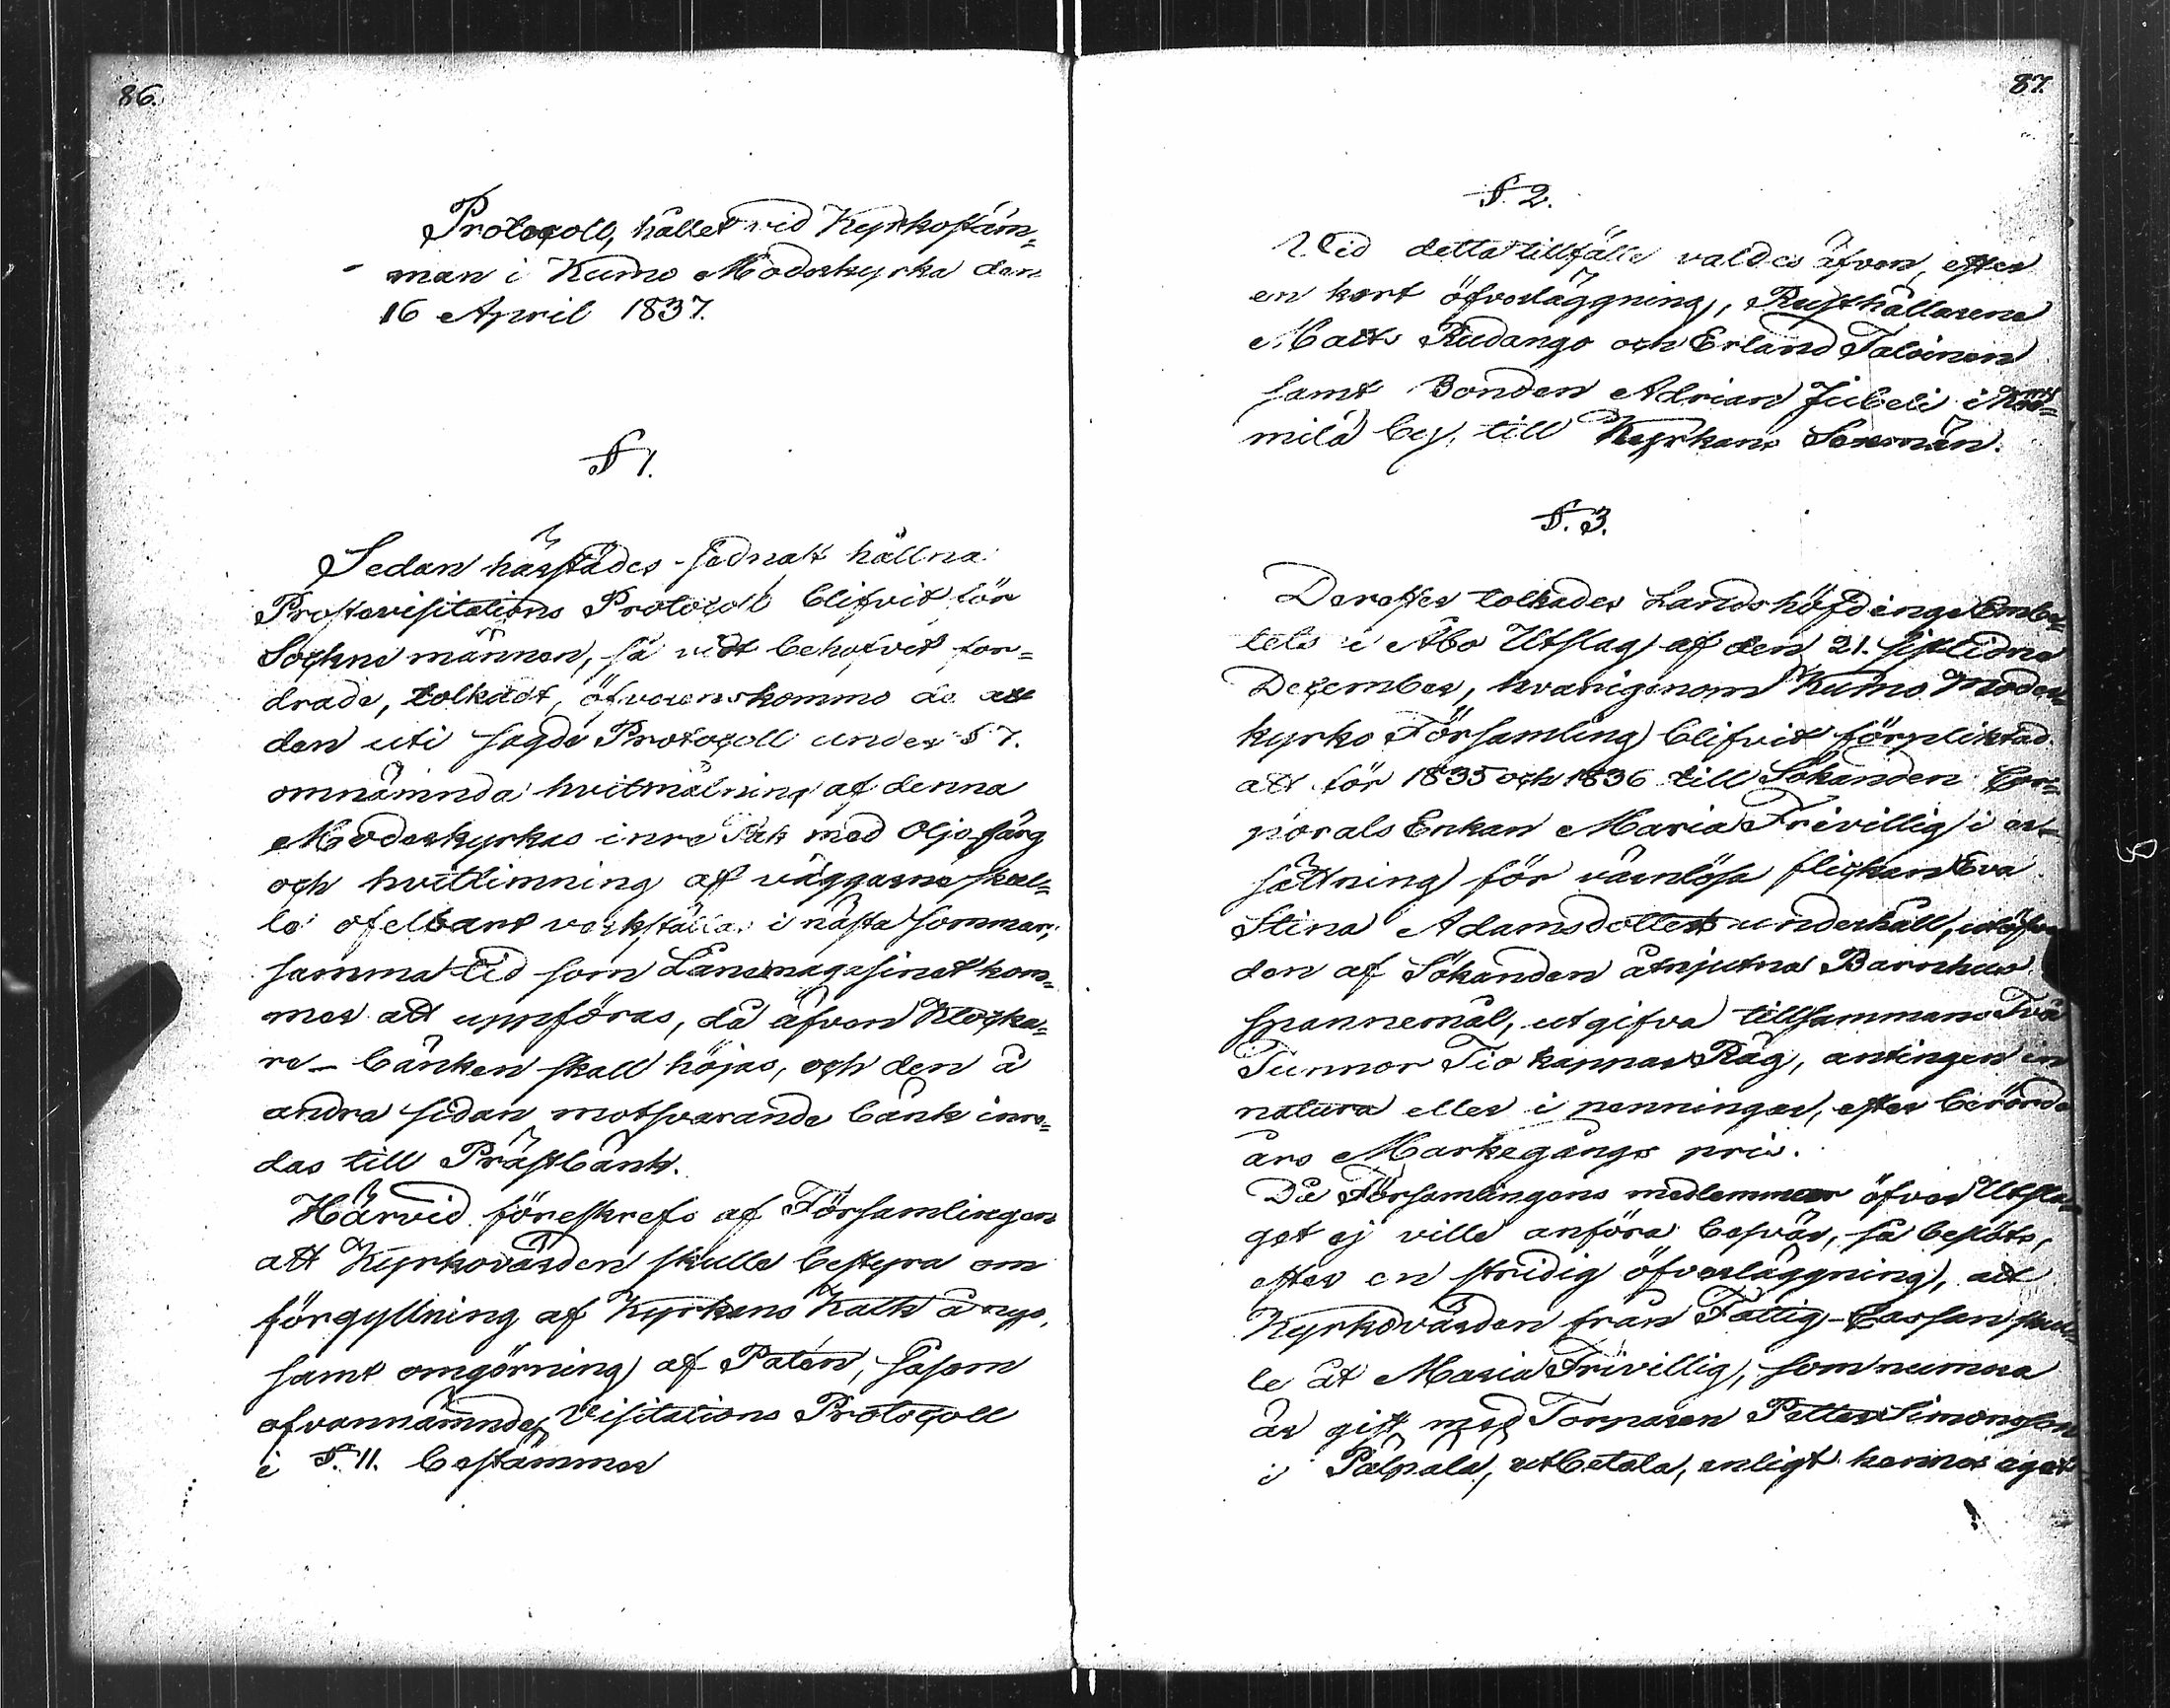 86.
Protocoll, hållet vid Kyrkostäm=
man i Kumo Moderkyrka den
16 April 1837.
§ 1.
Sedan härstädes sednast hållna
Prostevisitations Protocoll blifvit för
Sockne männen, så vidt behofvet for=
drade, tolkadt, öfverenskommo de att
den uti sagde Protocoll under § 7.
omnämnda hvitmålning af denna
Moderkyrkas inre Tak med Oljofärg
och hvitlimning af väggarne skul=
le ofelbart verkställas i nästa sommar,
samma tid som Lånemagasinet kom=
mer att uppföras, då äfven Klocka=
re-bänken skall höjas, och den å
andra sidan motsvarande bänk inre=
das till Prästbänk.
Härvid föreskrefs af Församlingen
att Kyrkovärden skulle bestyra om
förgyllning af Kyrkans Kalk å nyo,
samt omgörning af Patén, såsom
ofvannämnde Visitations Protocoll
i §. 11. bestämmer
87.
§. 2.
Vid detta tillfälle valdes äfven, efter
en kort öfverläggning, Rusthållarena
Matts Rudango och Erland Taloinen
samt Bonden Adrian Jubeli i
milä by, till Kyrkans Sexmän.
§. 3.
Derefter tolkades Landshöfdinge Embe=
tets i Åbo Utslag af den 21. sistlidne
December, hvarigenom Kumo Moder=
kyrko Församling blifvit förpliktad
att för 1835 och 1836 till Sökanden Cor=
porals Enkan Maria Frivillig i er=
sättning för värnlösa flickan Eva
Stina Adamsdotters underhåll, utöfver
den af Sökanden åtnjutna Barnhus
spannemål, utgifva tillsammans Två
Tunnor Tio kappar Råg, antingen in
natura eller i penningar, efter berörde
års Markegångs pris.
Då Församlingens medlemmar öfver Utsla=
get ej ville anföra besvär, så beslöts,
efter en stridig öfverläggning, att
Kyrkovärden från Fattig-Cassan skul=
le åt Maria Frivillig, som numera
är gift med Torparen Petter Simonsson
i Pälpälä, utbetala, enligt hennes eget